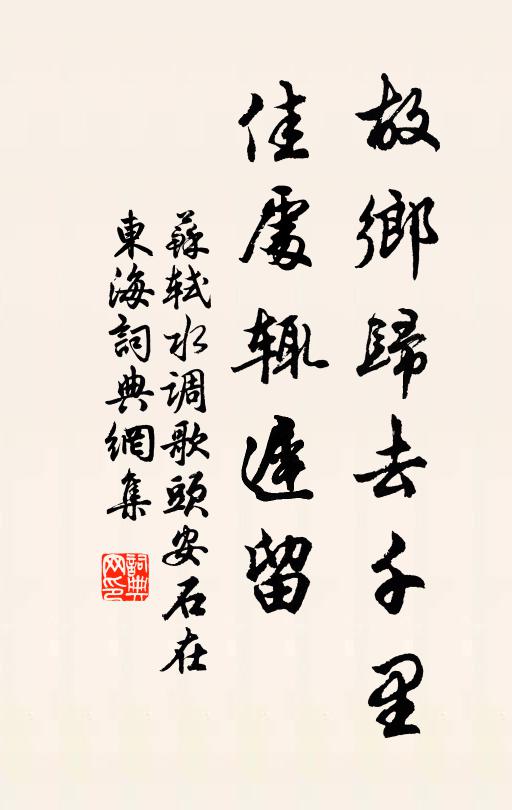 故鄉歸去千里
佳處辄遲留
蘇轼水调歌頭安石在
東海詞典網集
詞典网印